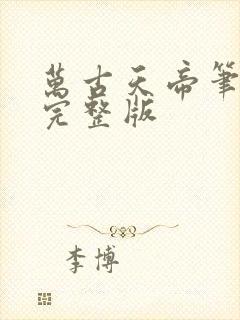 萬古天帝筆
完整版
李博